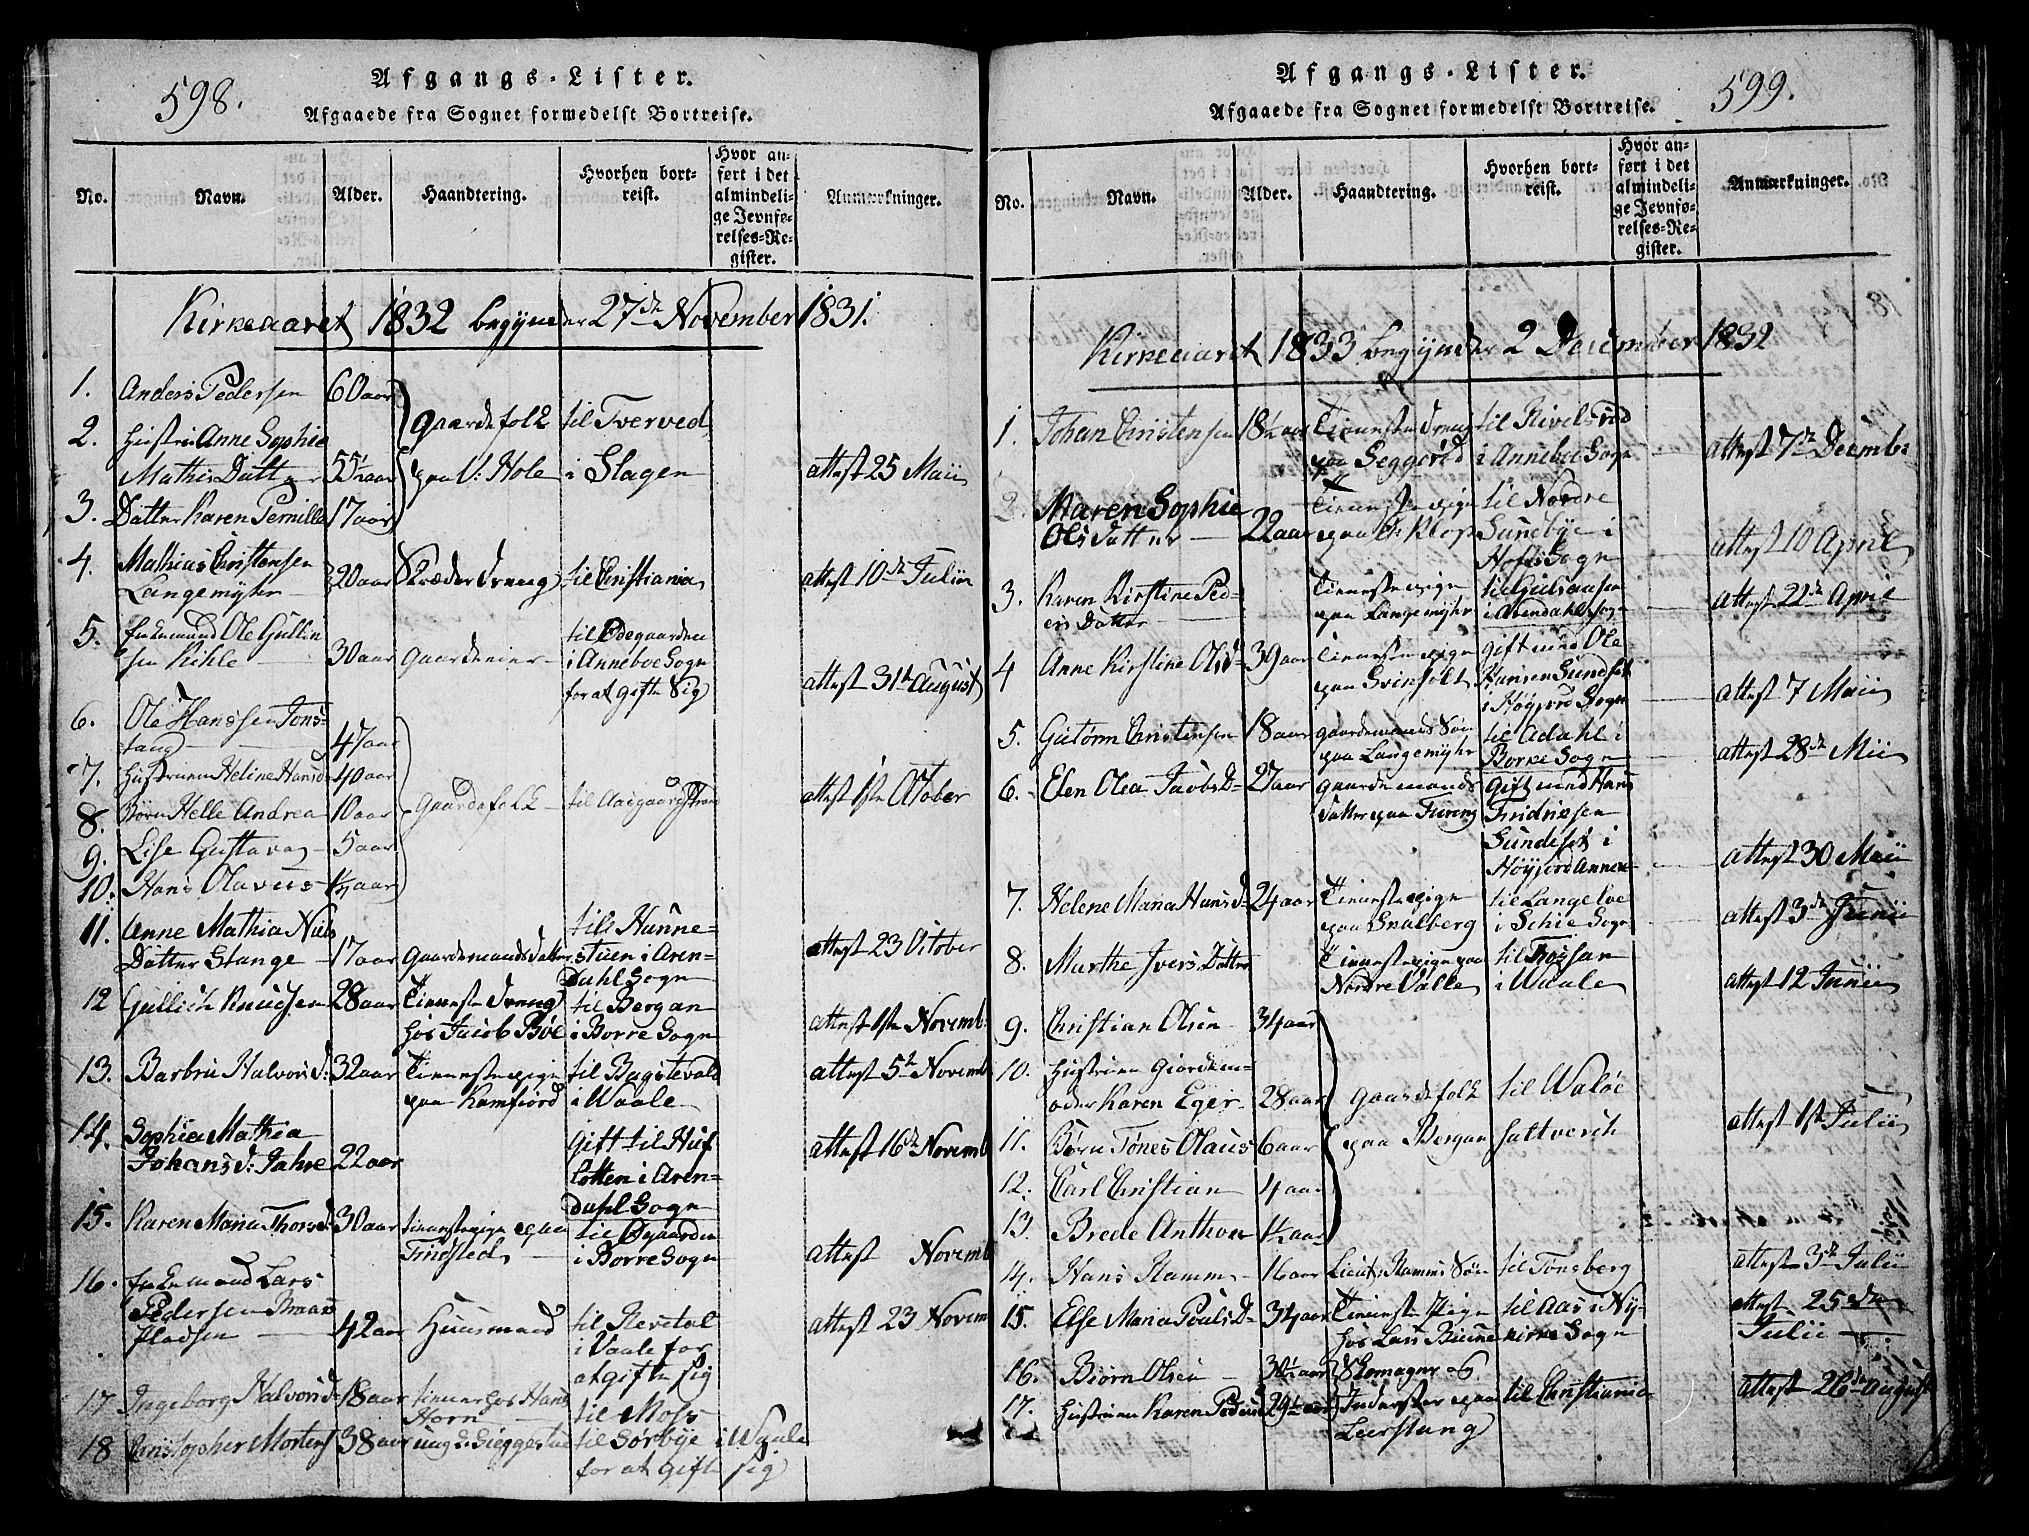 598.
Afgangs-Lister.
Afgaaede fra Sognet formedelst Bortreise.
No. Navn. Alder. Haandtering. Hvorhen bortreist. Hvor anført i det almindelige Jevnførelses-Register. Anmærkninger.
Kirkeaaret 1832 begynder 27de November 1831.
1. Anders Pedersen 60 aar Gaardefolk til Tverved
2. Hustru Anne Sophie
Mathis Datter 55½ aar paa V: Hole i Slagen attest 25 Maii
3. Datter Karen Pernille 17 aar
4. Mathias Christensen
Langemyhr 20 aar Skræder Dreng til Christiania attest 10de Julii
5. Enkemand Ole Gullik
sen Kihle 30 aar Gaardeeier til Ødegaarden
i Anneboe Sogn
for at gifte Sig attest 31te August
6. Ole Hanssen Jons-
tang 47 aar
7. Hustruen Heline Hansd 40 aar
8. Børn Helle Andrea 10 aar Gaardefolk til Aasgaardstran attest 1ste October
9. Lise Gustava 5 aar
10. Hans Olavus ½ aar
11. Anne Mathia Niels
Datter Stange 17 aar Gaardemands Datter til Hunne-
stuen i Aren-
dahl Sogn attest 23 October
12 Gullich Knudsen 28 aar Tieneste Dreng
hos Jacob Bøe til Bergan
i Borre Sogn attest 1ste Novemb.
13. Barbru Halvors d: 32 aar Tienestepige
paa Ramfiord til Bagstevold
i Waale attest 5te Novemb
14. Sophia Mathia
Johans d: Jahre 22 aar Gift til Huf
lotten i Aren-
dahl Sogn attest 16de Novemb
15. Karen Maria Thorsd: 30 aar tienestepige paa
til Øgaarden
i Borre Sogn attest Novemb
16. Enkemand Lars
Pedersen Braar
Pladsen 42 aar Huusmand til
i Vaale for
at gifte sig attest 23 Novem
17 Ingeborg Halvorsd 18 aar tiener hos Hans
Horn til Moss
18 Christopher Mortens 38 aar ung k: til Sørbye i Waale
for at gifte sig
599.
Afgangs-Lister.
Afgaaede fra Sognet formedelst Bortreise.
No. Navn. Alder. Haandtering. Hvorhen bortreist. Hvor anført i det almindelige Jevnførelses-Register. Anmærkninger.
Kirkeaaret 1833 begynder 2 December 1832
1. Johan Christensen 18½ aar Tieneste Dreng
paa Seggerød til
i Anneboe Sogn attest 7de Decemb:
2. Maren Sophie
Ols Datter 22 aar Tienestepige
paa til Nordre
Sundbye i
Hofs Sogn attest 10 April
3. Karen Kirstine Ped-
ers Datter Tienestepige
paa Langemyhr
i Arendahl Sogn attest 22de April
4 Anne Kirstine Olsd 39 aar Tienestepige
paa Svinholt gift med Ole
Hansen Sundset
i Høyjord Sogn attest 7 Maii
5. Gutorm Christensen 18 aar Gaardemands Søn
paa Langemyhr til Adahl i
Borre Sogn attest 28de Mii
6. Elen Olea Jacobs D 27 aar Gaardemands
Datter paa Fureng Gift med Hans
Fridrichsen
Sundset i
Høyjord Annex attest 30 Maii
7. Helene Maria Hansd 24 aar Tienestepige
paa Snalberg til Langeloe
i Schie Sogn attest 3de Junii
8. Marthe Ivers Datter Tienestepige paa
Nordre Valle til
i Waale attest 12 Junii
9. Christian Olsen 34 aar
10. Hustruen Giordem-
oder Karen Eger 28 aar Gaardefolk til Waløe
11. Børn Tønes Olaus 6 aar paa Bergan Saltverch attest 1ste Julii
12. Carl Christian 4 aar
13. Brede Anthon ½ aar
14. Hans Stamm 16 aar Lieut: Stamms Søn til Tønsberg attest 3de Julii
15. Else Maria Pouls D 34 aar Tieneste Pige
hos Lars Bruue til Aas i Ny-
kirke Sogn attest 25de
Julii
16. Biørn Olsen 30½ aar Skomager og
17. Hustruen Karen Peders d 29½ aar Inderster paa
Leerstang til Christiania attest 26de August